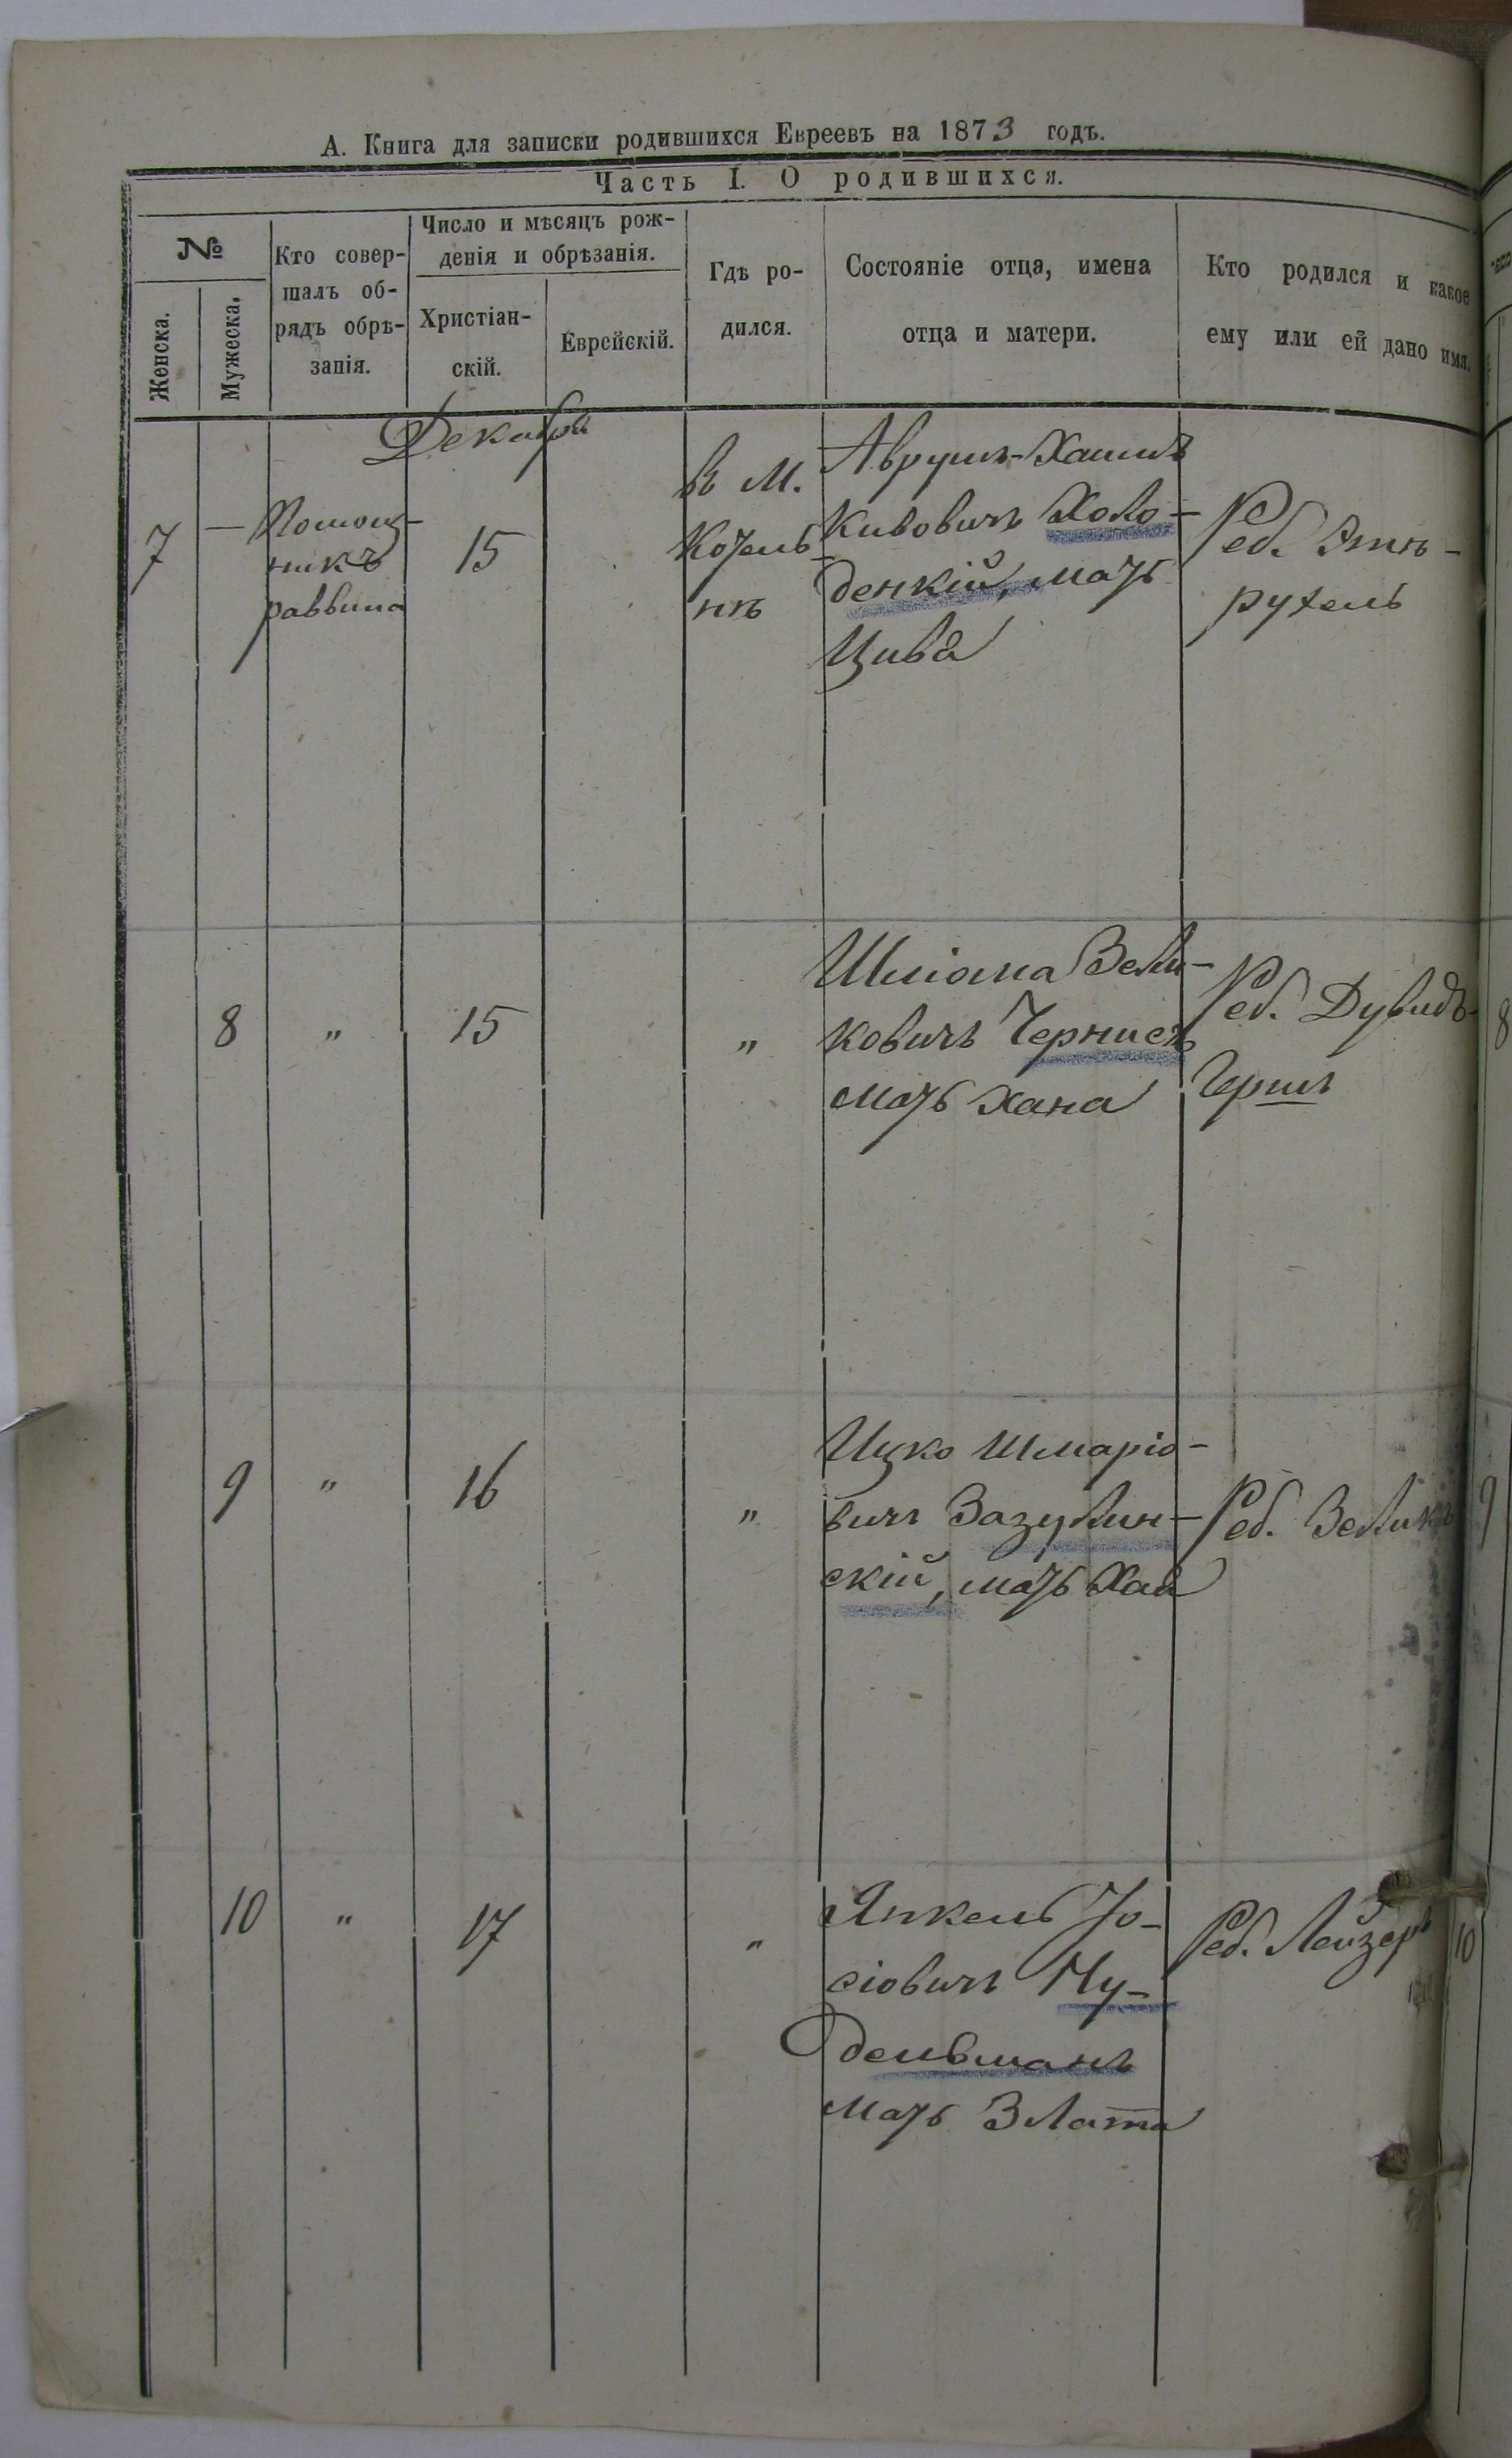 А. Книга для записки родившихся Евреевъ на 1873 годъ.
Часть I. О родившихся.
№
Женска.
Мужеска.
Кто совер-
шалъ об-
рядъ обрѣ-
занія.
Число и мѣсяцъ рож-
денія и обрѣзанія.
Христіан-
скій.
Еврейскій.
Гдѣ ро-
дился.
Состояніе отца, имена
отца и матери.
Кто родился и какое
ему или ей дано имя.
Декабря
7
—
Помощ-
никъ
раввина
15
В М.
Котель-
нѣ
Аврумъ-Хаимъ
Кивовичъ Холо-
денкій, мать
Цива
Реб. Этт-
рухель
8
"
15
"
Шліома Зели-
ковичъ Чернисъ
мать Хана
Реб. Дувидъ-
Герш
9
"
16
"
Ицко Шмаріо-
вичъ Зазулин-
скій, мать Хая
Реб. Зеликъ
10
"
17
"
Янкель Іо-
сіовичъ Ну-
дельманъ
мать Злата
Реб. Лейзеръ
8
9
10